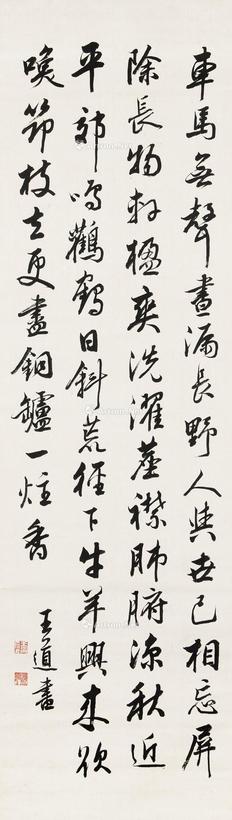 車馬無聲晝漏長野人與世已相忘屏
除長物軒楹爽洗濯塵襟肺腑涼秋近
平郊鳴鸛鶴日斜荒徑下牛羊興來欲
喚筇枝去更盡銅鑪一炷香
王道書